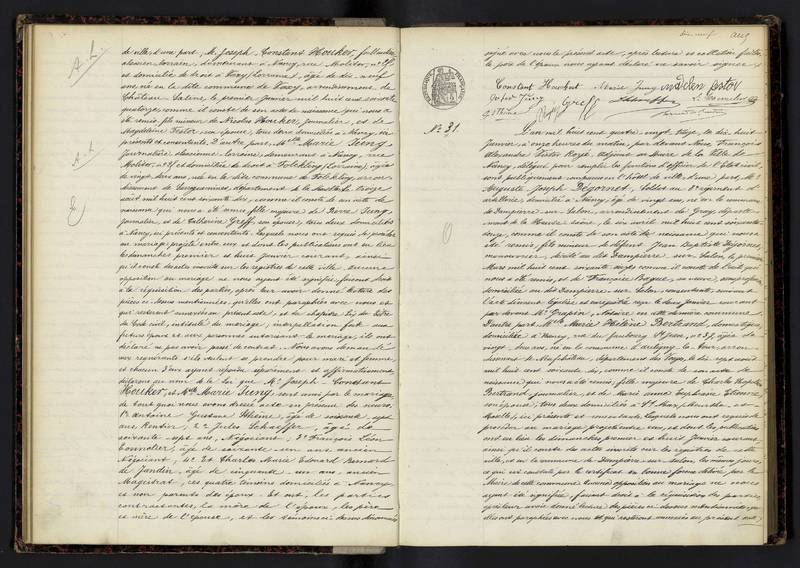 de ville, d'une part, M. Joseph, Constant Houker,
alsacien-lorrain, demeurant à Nancy, rue Molitor,
et domicilié de droit à Vaxy (Lorraine), âgé de dix neuf
ans, né en la dite commune de Vaxy, arrondissement de
Château Salins, le premier janvier mil huit cent soixante
quatorze, comme il conste de son acte de naissance qui nous a
été remis, fils mineur de Nicolas Houcker, journalier, et de
Magdeleine Pestor son épouse, tous deux domiciliés à Nancy, ici
présents et consentants. D'autre part, Mlle Marie Jung,
journalière, alsacienne-lorraine, demeurant à Nancy, rue
Molitor, et domiciliée de droit à Folckling (Lorraine), âgée
de vingt deux ans, née en la dite commune de Folckling, arron-
dissement de Sarreguemines, département de la Moselle, le treize
août mil huit cent soixante dix, comme il conste de son acte de
naissance qui nous a été remis, fille majeure de Pierre Jung,
journalier, et de Catherine Greff, son épouse, tous deux domiciliés
à Nancy, ici présents et consentants. Lesquels nous ont requis de procéder
au mariage projeté entre eux et dont les publications ont eu lieu
les dimanches premier et huit janvier courant, ainsi
qu'il conste des actes inscrits sur les registres de cette ville. Aucune
opposition au mariage ne nous ayant été signifiée, faisant droit
à la réquisition des parties, après leur avoir donné lecture des
pièces ci-dessus mentionnées, qu'elles ont paraphées avec nous et
qui resteront annexées au présent acte, et du chapitre six du titre
du Code civil, intitulé du mariage, interpellation faite aux
futurs époux et aux personnes autorisant le mariage, ils ont
déclaré ne pas avoir passé de contrat. Nous avons demandé
aux requérants s'ils veulent se prendre pour mari et femme
et chacun d'eux ayant répondu séparément et affirmativement,
déclarons au nom de la loi que M. Joseph Constant
Houker, et Mlle Marie Jung, sont unis par le mariage.
De tout quoi nous avons dressé acte en présence des sieurs
1° Antoine Gustave Thine, âgé de soixante sept
ans, Rentier, 2° Jules Schaeffer, âgé de
soixante sept ans, Négociant, 3° François Léon
âgé de soixante un ans, ancien
Négociant, 4° Et Charles Marie Edouard Renard
de Jandin, âgé de cinquante un ans, ancien
Magistrat, ces quatre témoins domiciliés à Nancy
et non parents des époux. Et ont, les parties
contractantes, la mère de l'époux, les père
et mère de l'épouse, et les témoins ci-dessus dénommés
signé avec nous le présent acte, après lecture et collation faites,
le père de l'époux nous ayant déclaré ne savoir signer.
Constant Houkert Marie Jung
Greff
N° 31.
L'an mil huit cent quatre vingt treize, le dix huit
janvier à onze heures du matin, par devant Nous François
Alexandre Victor Rozé, Adjoint au Maire de la Ville de
Nancy, délégué pour remplir les fonctions d'officier de l'état civil,
sont publiquement comparus en l'hôtel de ville, d'une part, M.
Auguste Joseph Dégornet, soldat au régiment d'
artillerie, domicilié à Nancy, âgé de vingt ans, né en la commune
de Dampierre sur Salon, arrondissement de Gray, départe-
ment de la Haute Saône, le dix avril mil huit cent soixante
douze, comme il conste de son acte de naissance qui nous a
été remis, fils mineur de défunt Jean Baptiste Dégornet,
décédé au dit Dampierre sur Salon, le premier
Mars mil huit cent soixante onze comme il conste de l'acte qui
nous a été remis, et de Françoise Roques, sa veuve,
domiciliée au dit Dampierre sur Salon, consentante, suivant
l'acte dûment légalisé et enregistré reçu le deux janvier courant
par devant Me Grapin, Notaire en cette dernière commune.
D'autre part, Mlle Marie Hélène Bertrand, domestique,
domiciliée à Nancy, rue du faubourg St Jean, n° 37, âgée de
vingt deux ans, née en la commune d'
dement de Neufchâteau, département des Vosges, le dix sept août
mil huit cent soixante dix, comme il conste de son acte de
naissance qui nous a été remis, fille majeure de Charles
Bertrand, journalier, et de Marie Anne Euphrasie Etienne,
son épouse, tous deux domiciliés à
Moselle), ici présents et consentants. Lesquels nous ont requis de
procéder au mariage projeté entre eux, et dont les publications
ont eu lieu les dimanches premier et huit janvier courant,
ainsi qu'il conste des actes inscrits sur les registres de cette
ville, et en la commune de Dampierre sur Salon, les mêmes jours,
ce qui est constaté par le certificat en bonne forme délivré par le
Maire de cette commune. Aucune opposition au mariage ne nous
ayant été signifiée, faisant droit à la réquisition des parties,
après leur avoir donné lecture des pièces ci-dessus mentionnées, qu'
elles ont paraphées avec nous et qui resteront annexées au présent acte,